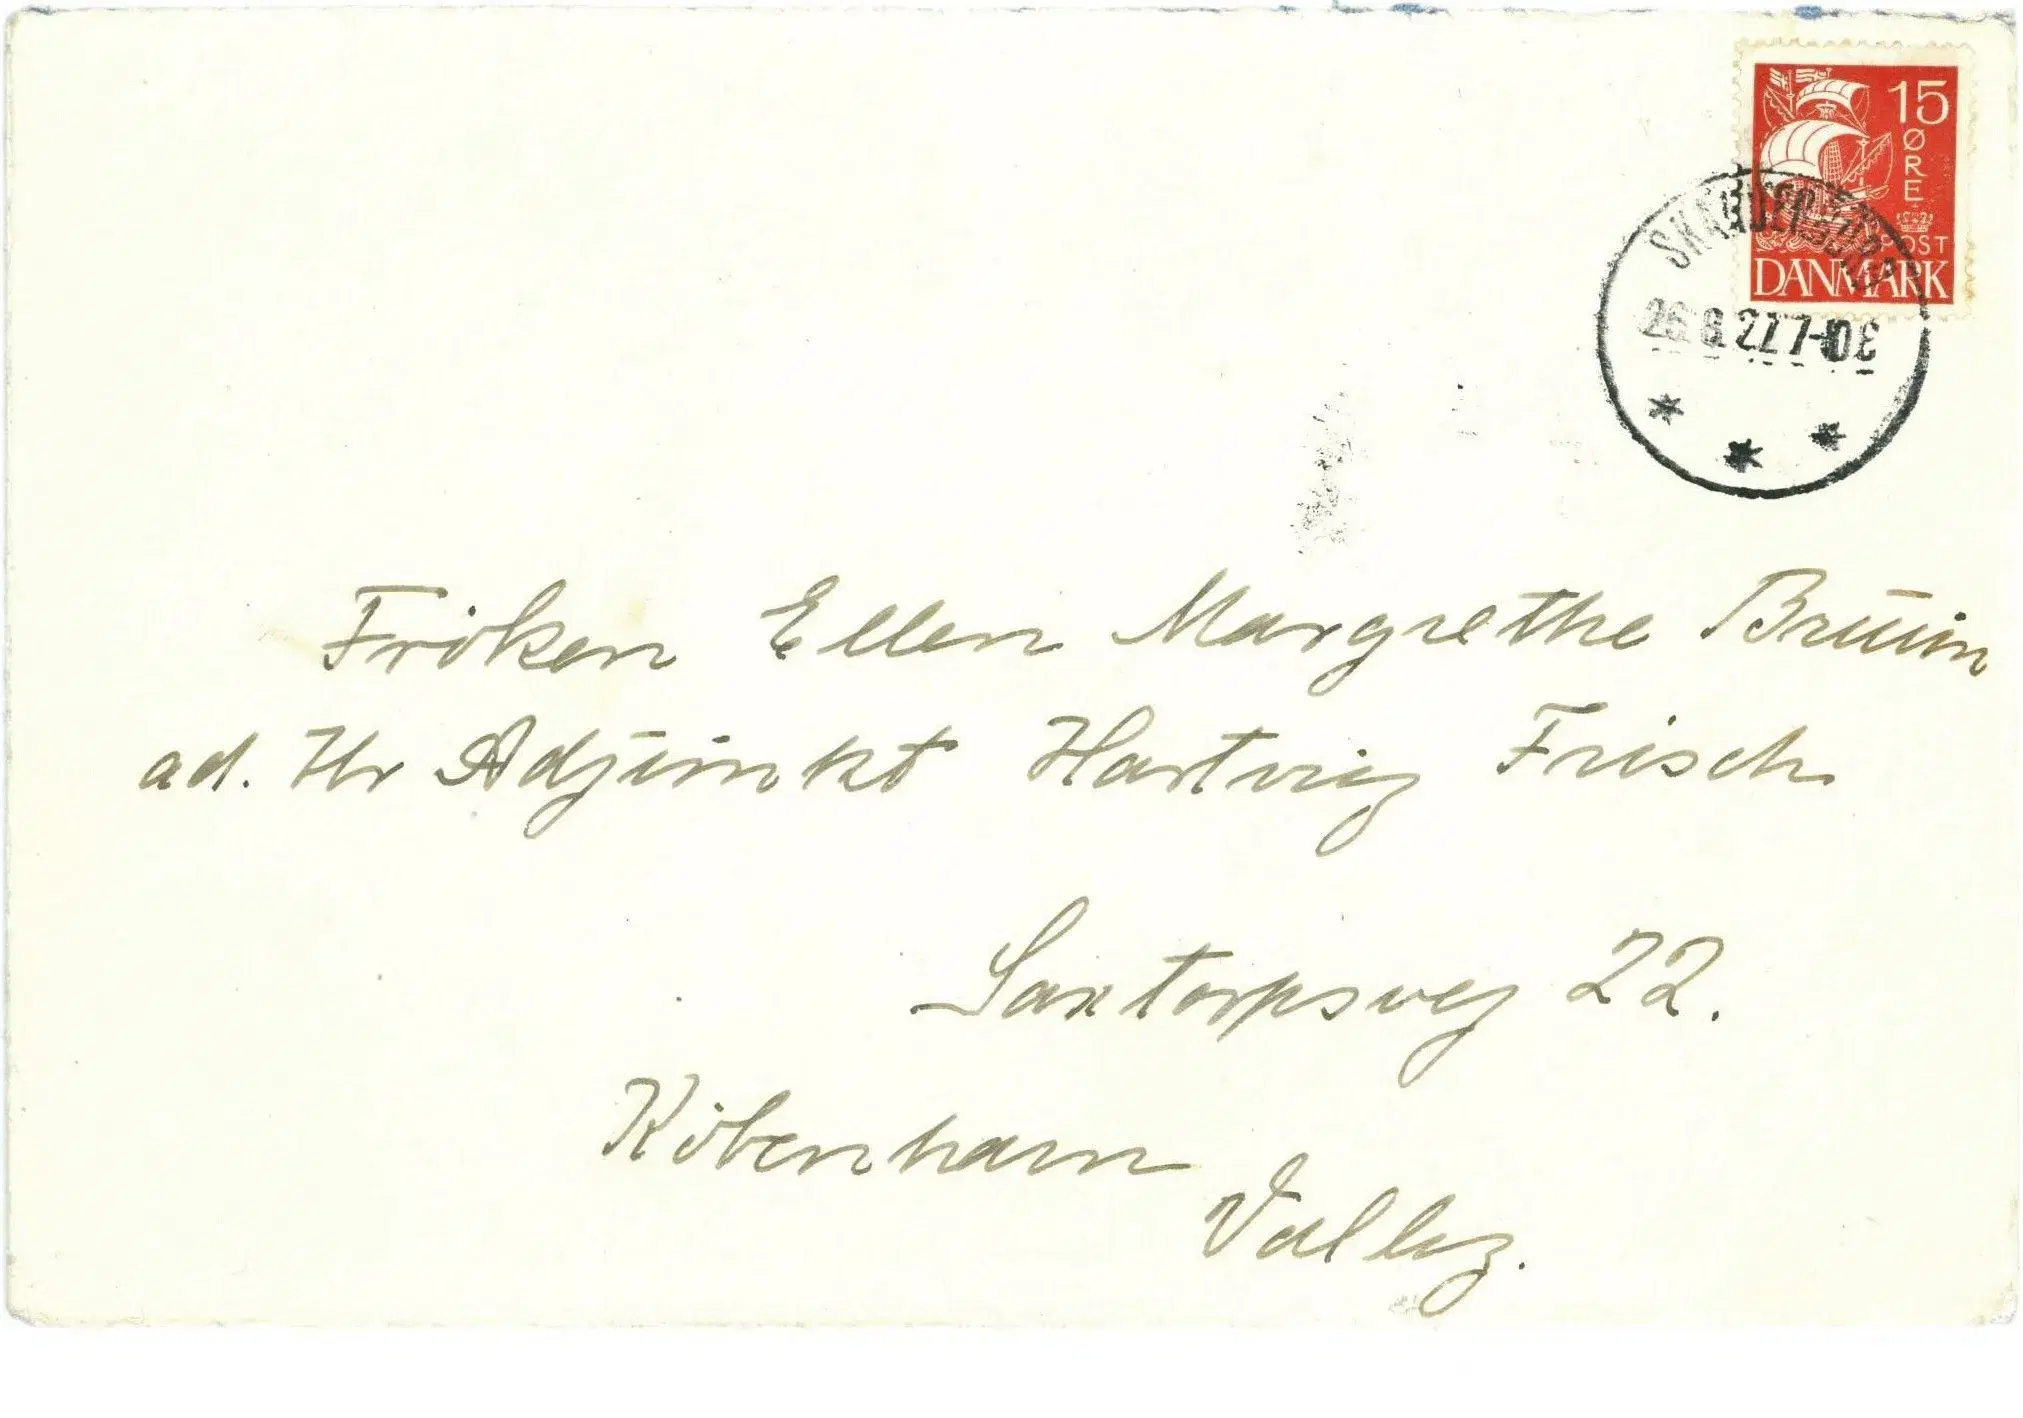 15
ØRE
POST
DANMARK
SKANDERBORG
26.6.27.7-10E
Fröken Ellen Margrethe Bruun
ad. Hr Adjunkt Hartvig Frisch
Saxtorpsvej 22.
København
Valby.